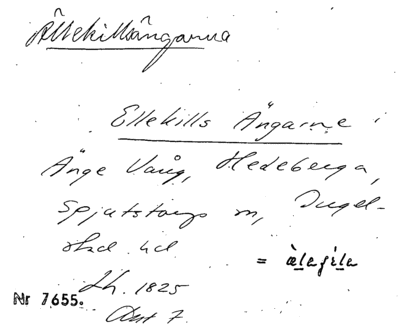 Ållekillsängarna
Ellekills Ängarne
Änge Vång, Hedeberga,
Spjutstorps sn, Ingel-
stad hd
= àlaʃìla
Lh. 1825
Nr 7655.
Akt 7